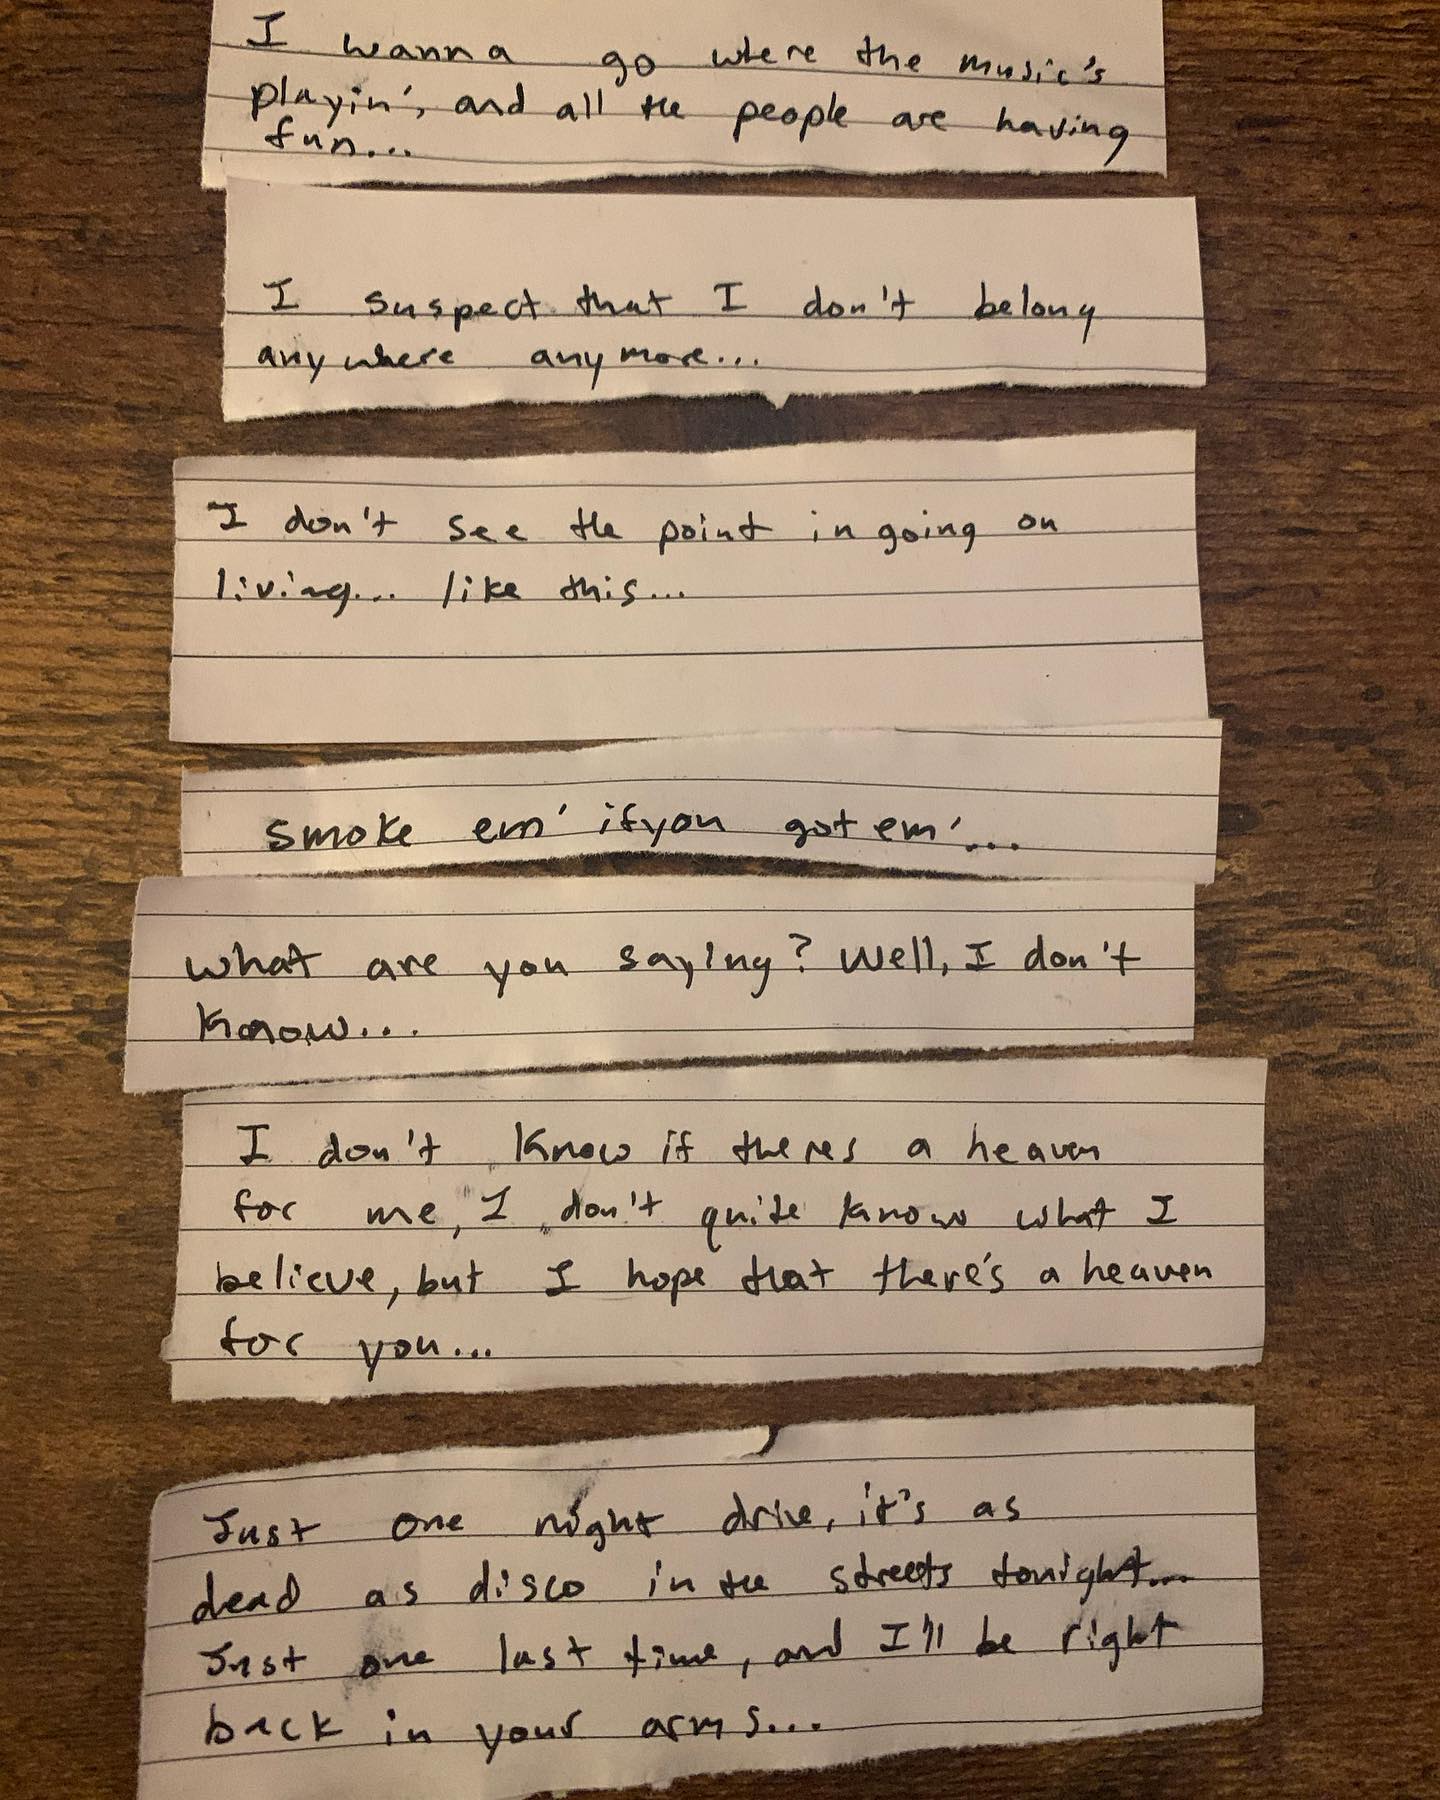 I wanna go where the music's
playin', and all the people are having
fun...
I suspect that I don't belong
anywhere anymore...
I don't see the point in going on
living... like this...
smoke em' if you got em'...
What are you saying? Well, I don't
know...
I don't know if theres a heaven
for me, I don't quite know what I
believe, but I hope that there's a heaven
for you...
Just one night drive, it's as
dead as disco in the streets tonight...
Just one last time, and I'll be right
back in your arms...